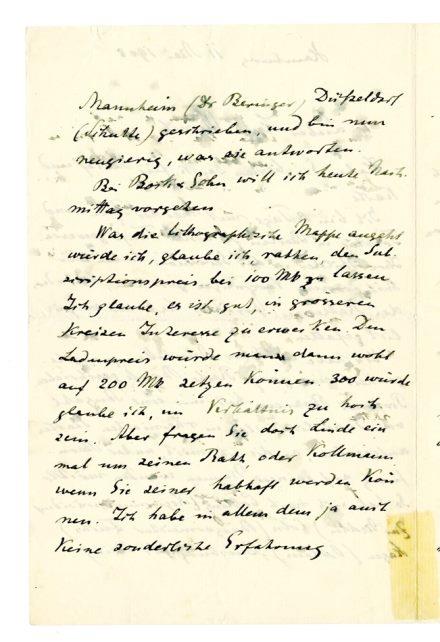 Mannheim (Dr Beringer) Düsseldorf
(Schutte) geschrieben, und bin nun
neugierig, was sie antworten.
Bei Bock & Sohn will ich heute Nach-
mittag vorgehen
Was die lithographische Mappe angeht
würde ich, glaube ich, rathen, den Sub-
scriptionspreis bei 100 Mk zu lassen
Ich glaube, es ist gut, in grösseren
Kreisen Interesse zu erwecken. Den
Ladenpreis würde man dann wohl
auf 200 Mk setzen können 300 würde
glaube ich, im Verhältnis zu hoch
sein. Aber fragen Sie doch Linde ein
mal um seinen Rath, oder Kollmann
wenn Sie seiner habhaft werden kön
nen. Ich habe in allem dem ja auch
keine sonderliche Erfahrung